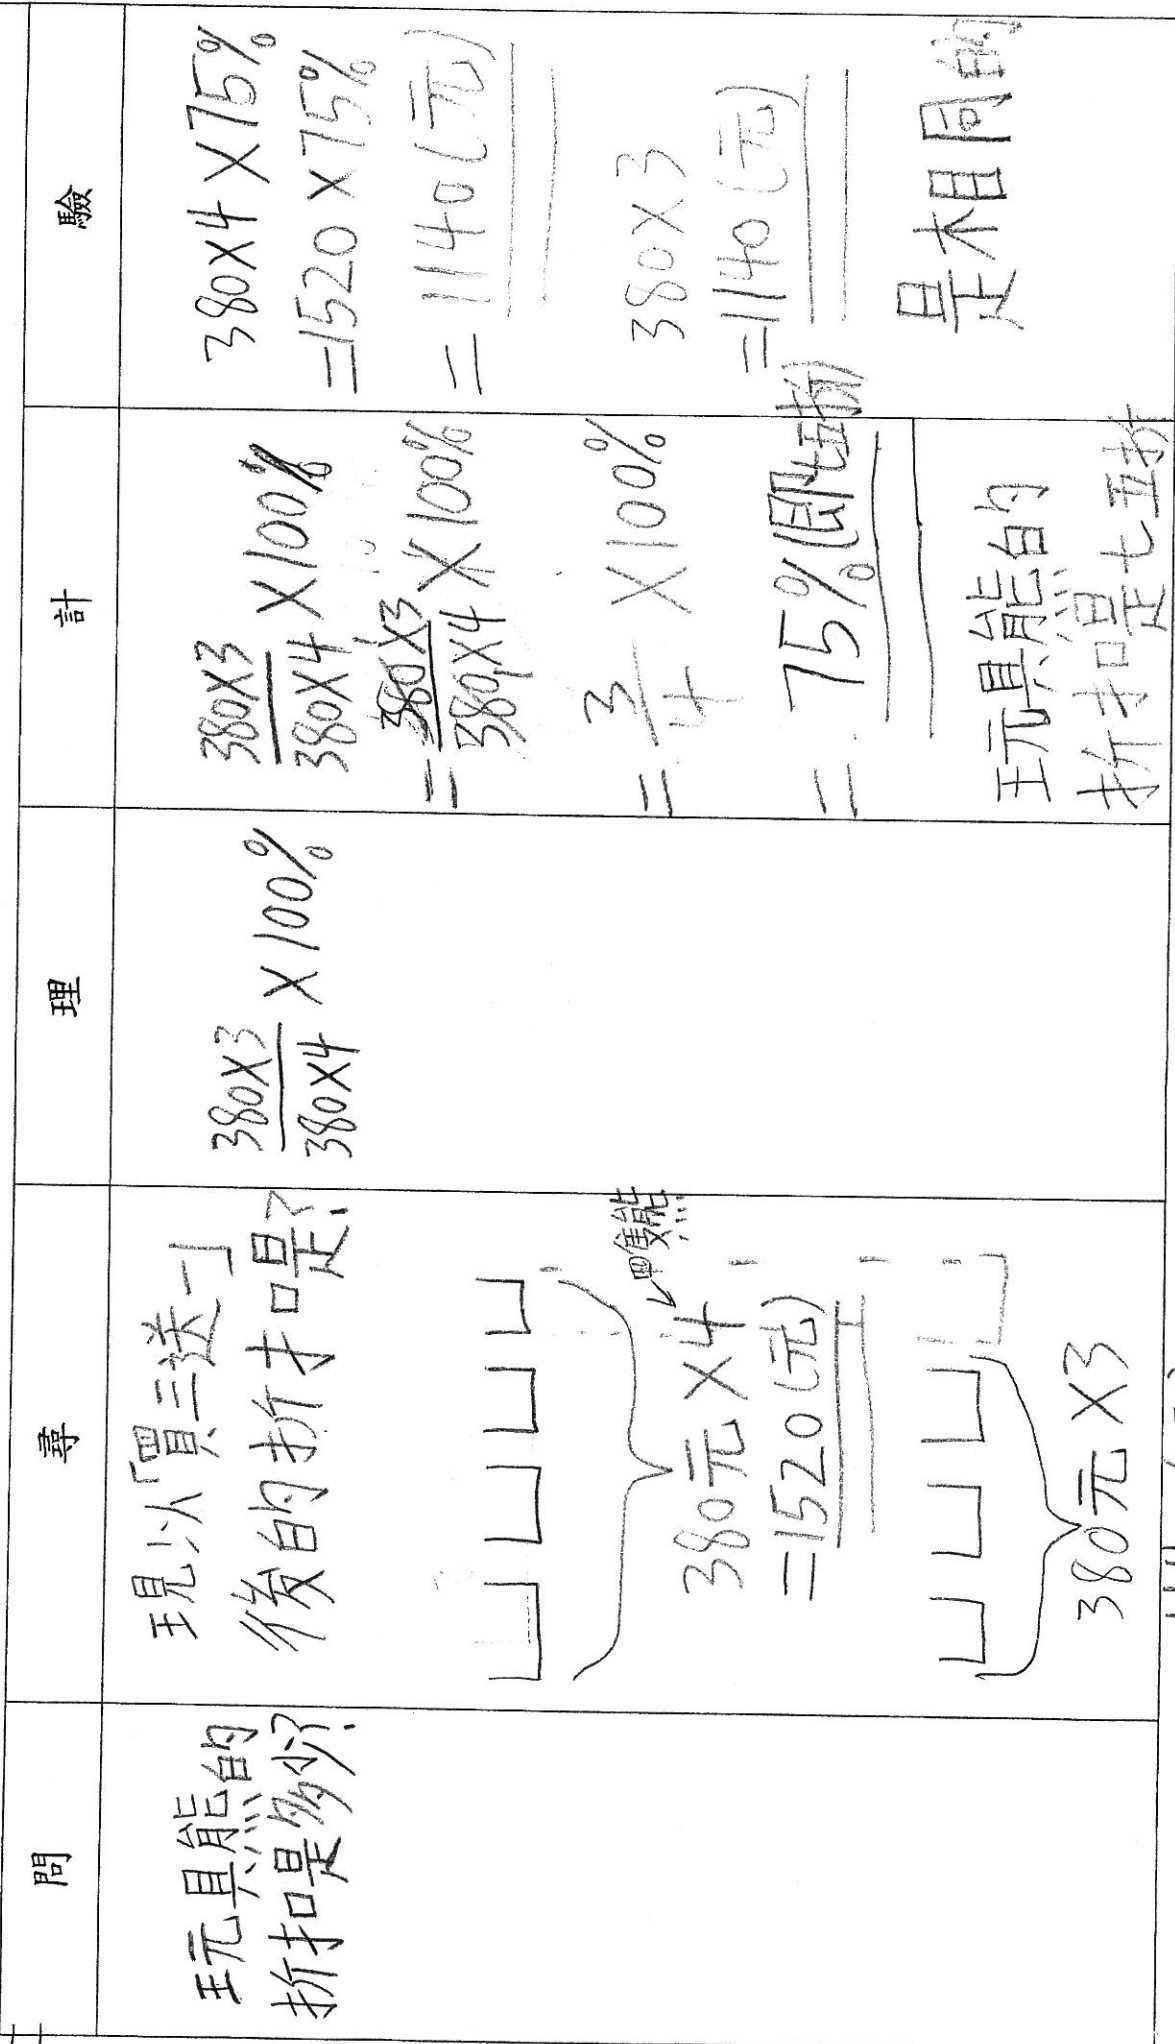 問
玩具熊的
折扣是多少?
尋
現以「買三送一」
後的折扣是?
380元×4
←四隻熊
=1520(元)
380元×3
理
380×3
380×4 ×100%
計
380×3
380×4 ×100%
=380×3
380×4 ×100%
=3
4 ×100%
=75%(即七五折)
玩具熊的
折扣是七五折
驗
380×4×75%
=1520×75%
=1140(元)
380×3
=1140(元)
是相同的